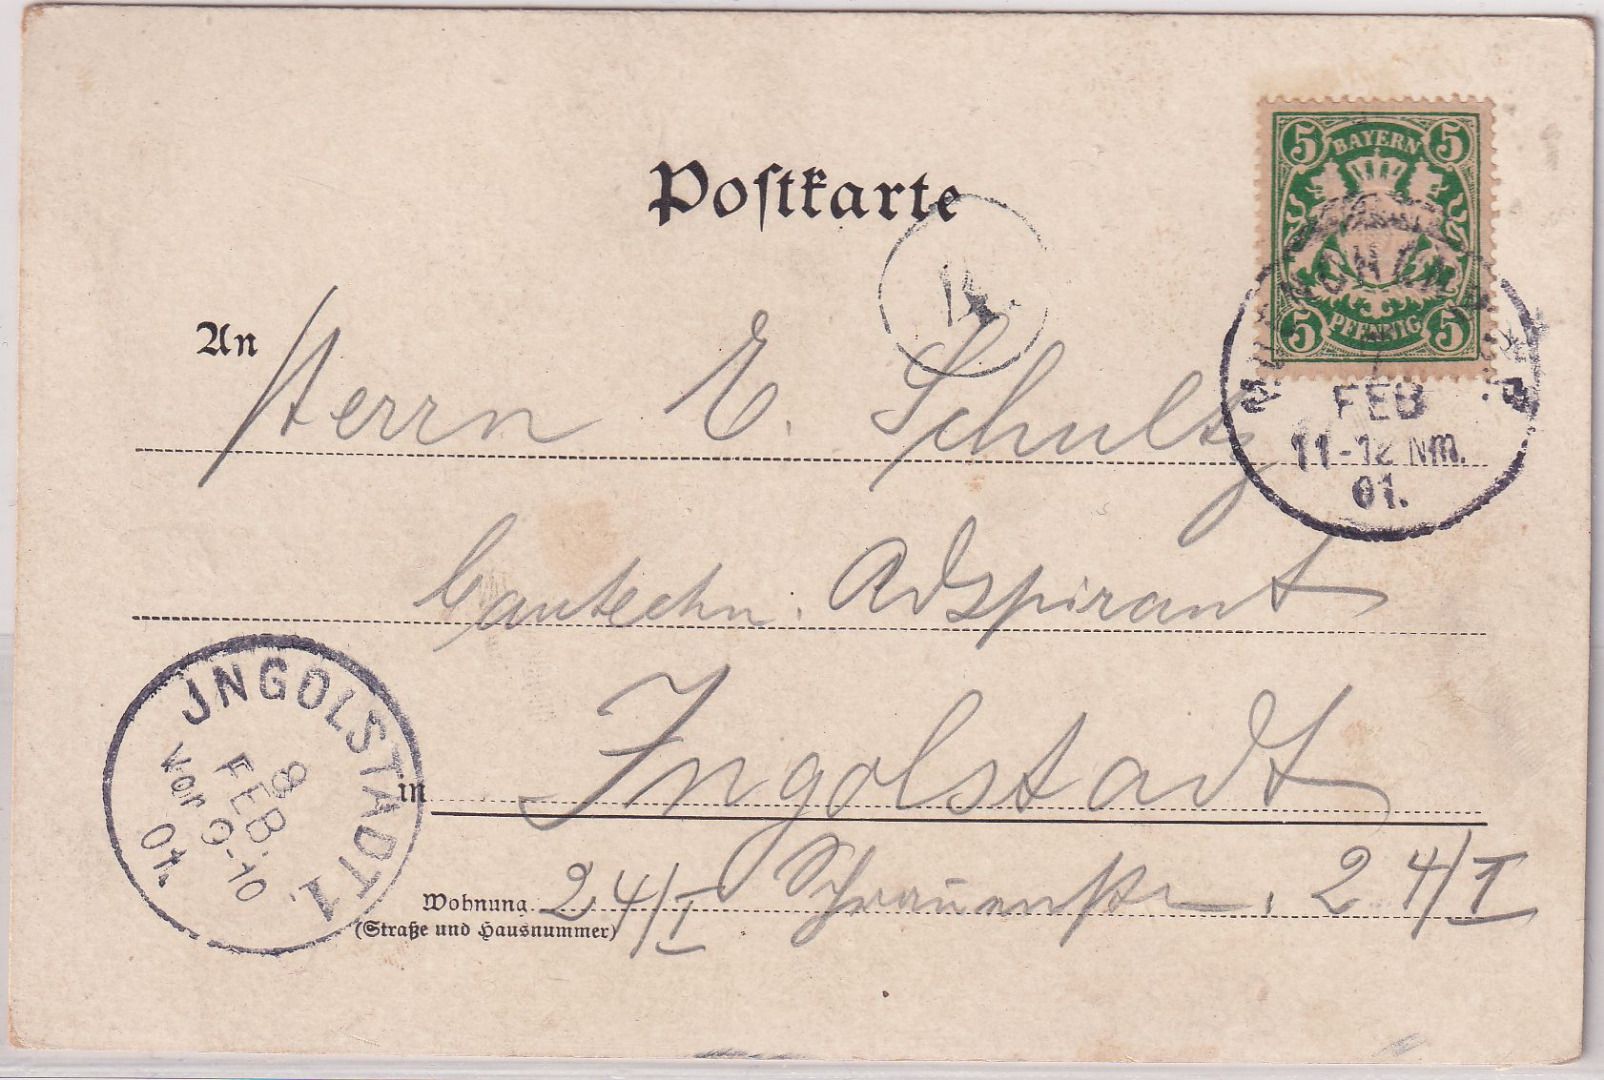 Postkarte
5 BAYERN 5
5 PFENNIG 5
14.
MÜNCHEN
7
FEB
11-12 Nm.
01.
An Herrn E. Schultz
bautechn. Adspirant
in Ingolstadt
Wohnung 24/I Schrannenstr. 24/I
(Straße und Hausnummer)
JNGOLSTADT 1.
8
FEB.
Vor 9-10
01.